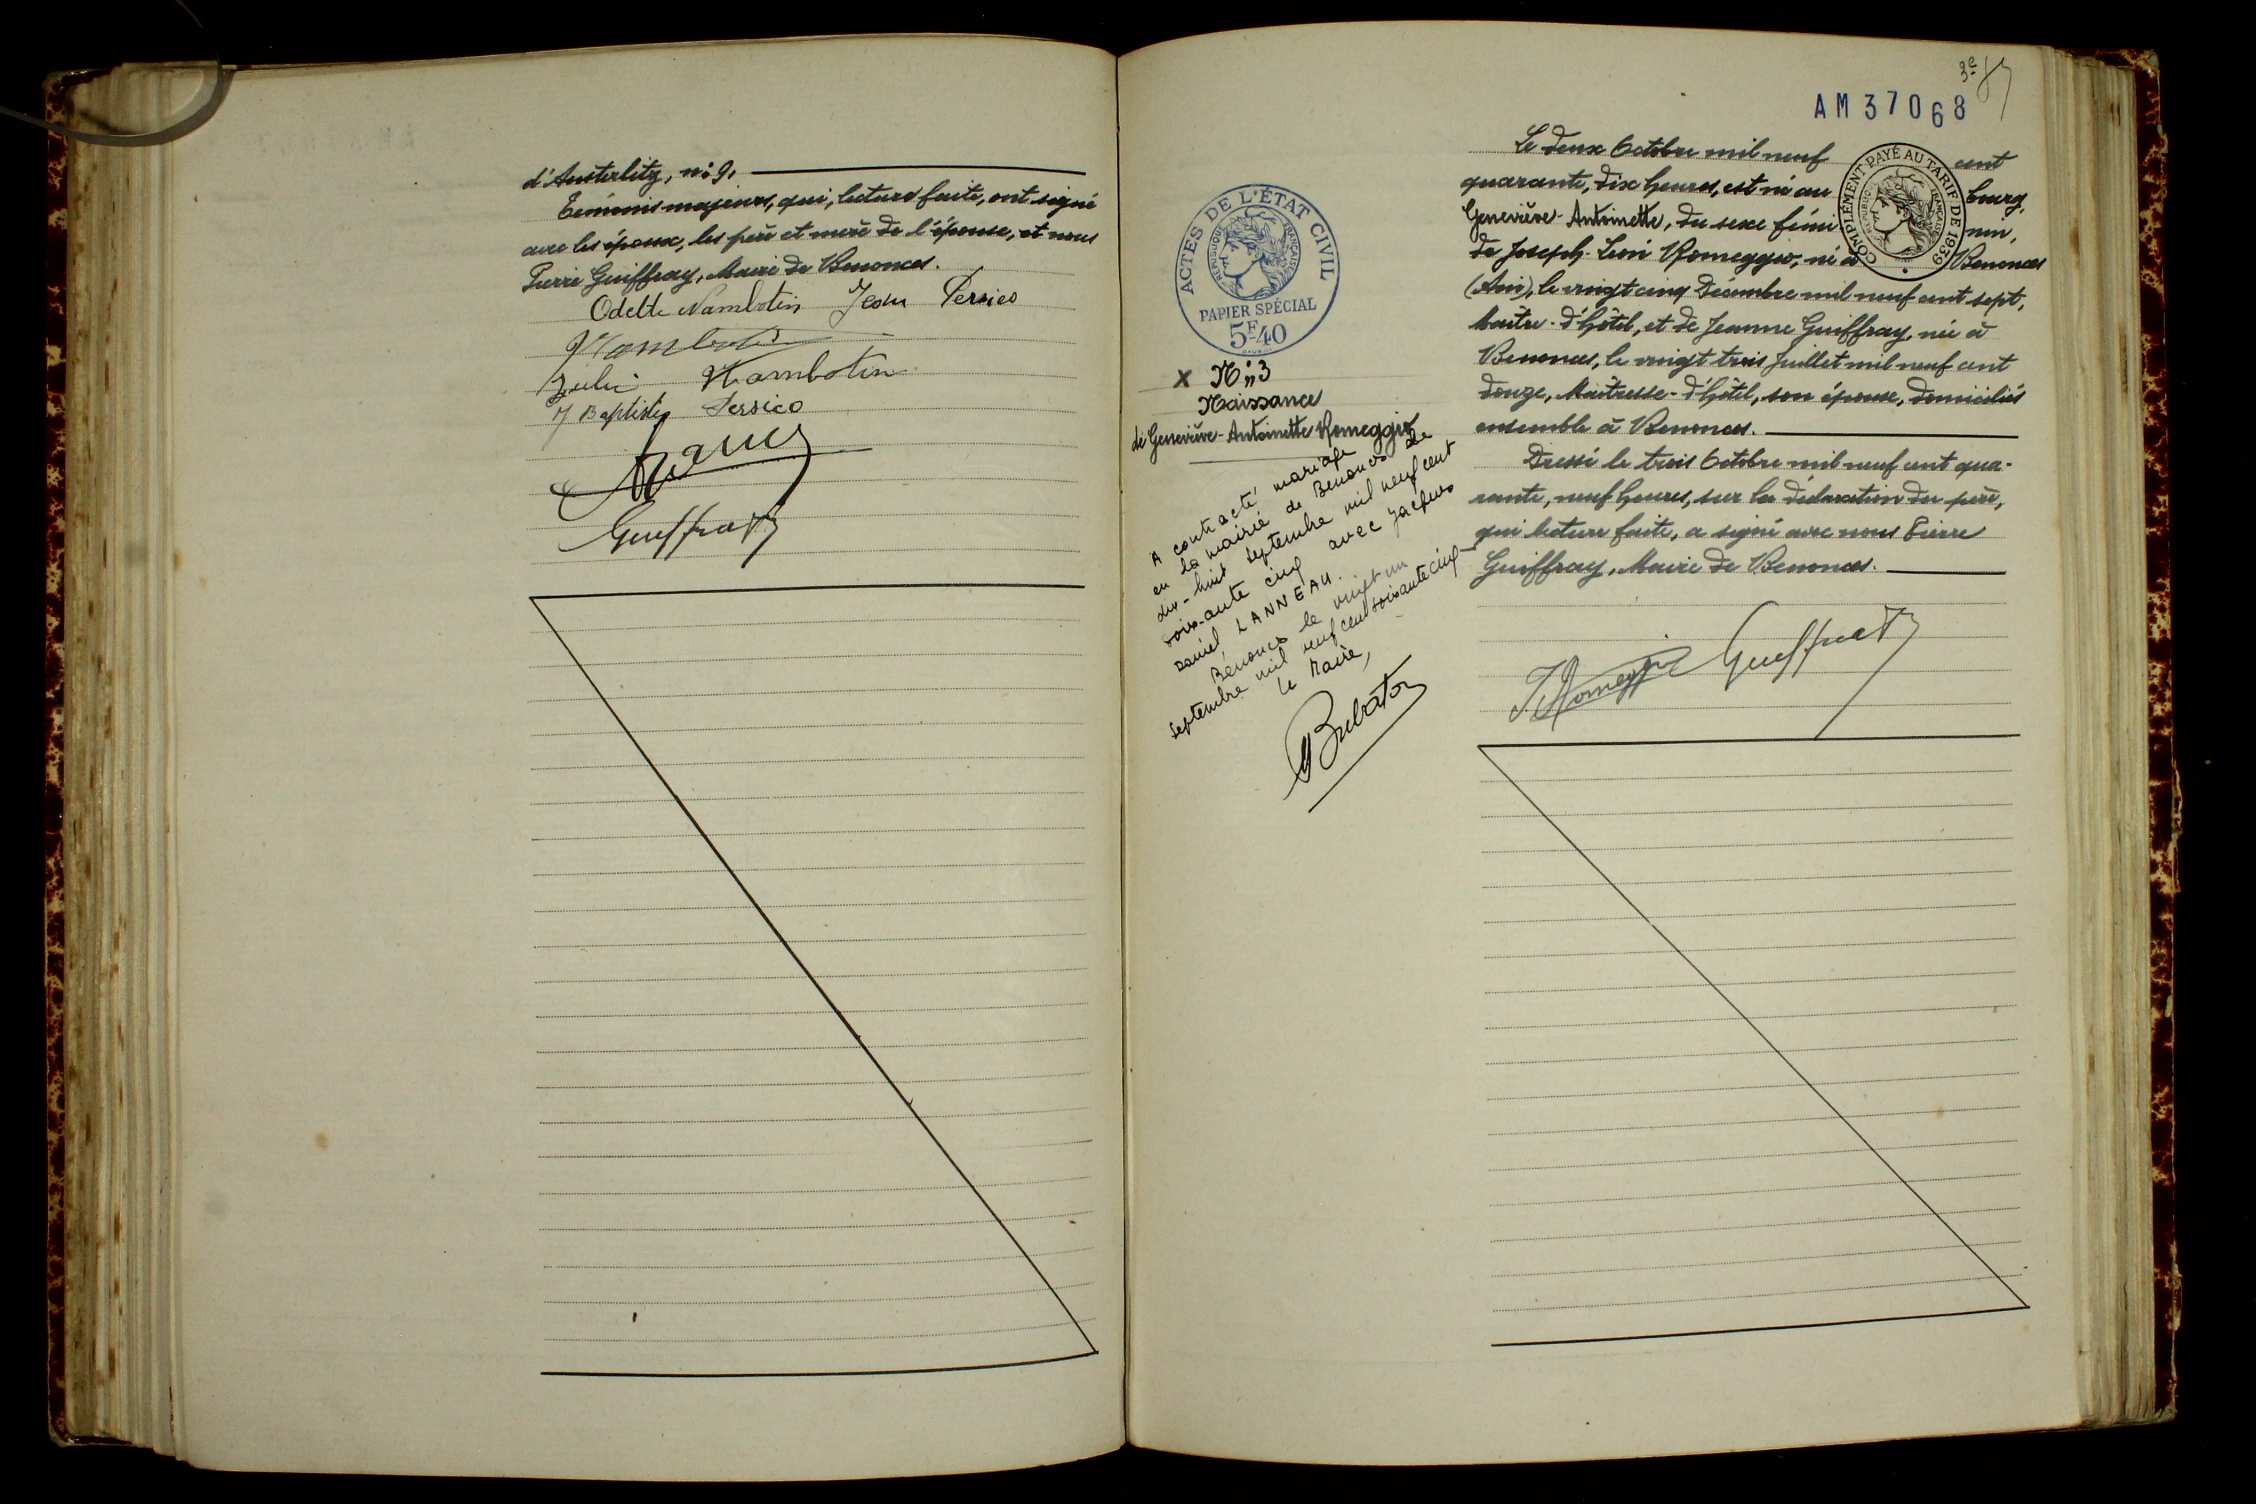 d'Austerlitz, n: 9,
Témoins majeurs, qui, lecture faite, ont signé
avec les époux, les père et mère de l'épouse, et nous
Pierre Guiffray, Maire de Benonces.
Odette Nambotin Jean Persico
Nambotin
Julie Nambotin
J Baptiste Persico
Guiffray
3e
AM37068
Le deux Octobre mil neuf cent
quarante, dix heures, est né au bourg,
Geneviève-Antoinette, du sexe fémi nin,
de Joseph-Léon Romeggio, né à Benonces
(Ain), le vingt cinq Décembre mil neuf cent sept,
Maître-d'hôtel, et de Jeanne Guiffray, née à
Benonces, le vingt trois Juillet mil neuf cent
douze, Maîtresse-d'hôtel, son épouse, domiciliés
ensemble à Benonces.
Dressé le trois Octobre mil neuf cent qua-
rante, neuf heures, sur la déclaration du père,
qui lecture faite, a signé avec nous Pierre
Guiffray, Maire de Benonces.
JRomeggio Guiffray
COMPLÉMENT PAYÉ AU TARIF DE 1939
RÉPUBLIQUE FRANÇAISE
ACTES DE L'ÉTAT CIVIL
RÉPUBLIQUE FRANÇAISE
PAPIER SPÉCIAL
5F40
X N: 3
Naissance
de Geneviève-Antoinette Romeggio
A contracté mariage
en la mairie de Benonces le
dix-huit septembre mil neuf cent
soixante cinq avec Jacques
Daniel LANNEAU.
Bénonces le vingt un
septembre mil neuf cent soixante cinq
Le Maire,